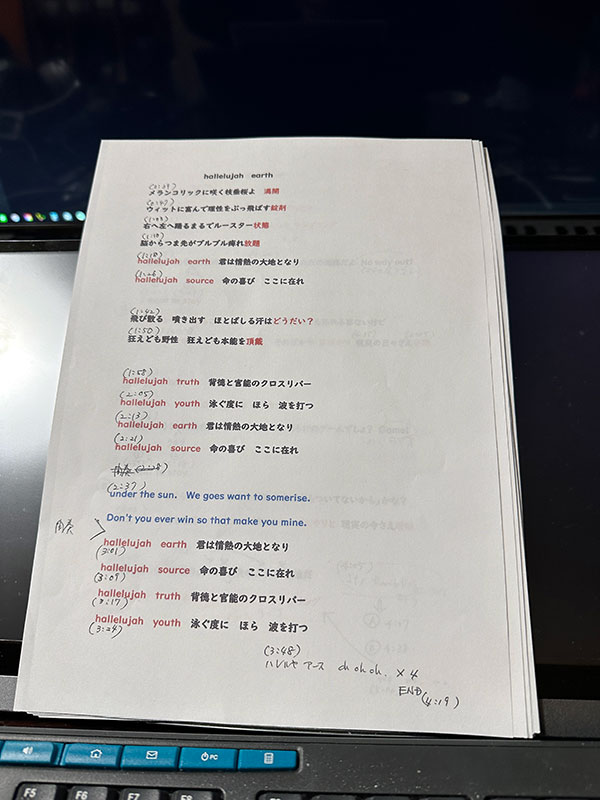 hallelujah earth
メランコリックに咲く枝垂桜よ 満開
ウィットに富んで理性をぶっ飛ばす錠剤
右へ左へ踊るまるでルースター状態
(1:10)
脳からつま先がブルブル痺れ放題
(1:18)
hallelujah earth 君は情熱の大地となり
(1:26)
hallelujah source 命の喜び ここに在れ
(1:42)
飛び散る 噴き出す ほとばしる汗はどうだい?
(1:50)
狂えども野性 狂えども本能を頂戴
(1:58)
hallelujah truth 背徳と官能のクロスリバー
(2:05)
hallelujah youth 泳ぐ度に ほら 波を打つ
(2:13)
hallelujah earth 君は情熱の大地となり
(2:21)
hallelujah source 命の喜び ここに在れ
(2:37)
under the sun. We goes want to somerise.
Don't you ever win so that make you mine.
間奏
hallelujah earth 君は情熱の大地となり
(3:01)
hallelujah source 命の喜び ここに在れ
(3:09)
hallelujah truth 背徳と官能のクロスリバー
(3:17)
hallelujah youth 泳ぐ度に ほら 波を打つ
(3:24)
(3:48)
ハレルヤ アース oh oh oh. × 4
END (4:19)
PC
F5 F6 F7 F8 F9